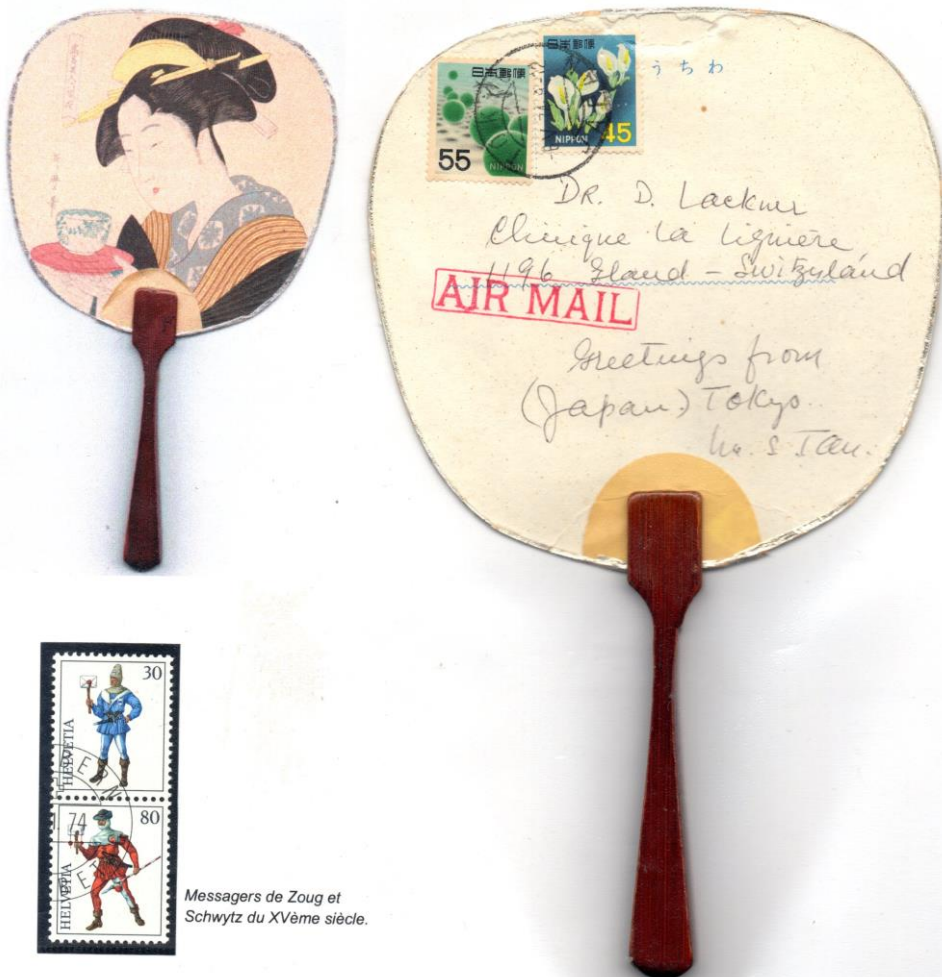 日本郵便
55
NIPPON
日本郵便
NIPPON
45
うちわ
DR. D. Lackner
Clinique La Lignière
1196 Gland - Switzerland
AIR MAIL
Greetings from
(Japan) Tokyo.
30
HELVETIA
BERN
74
80
HELVETIA
Messagers de Zoug et
Schwytz du XVème siècle.